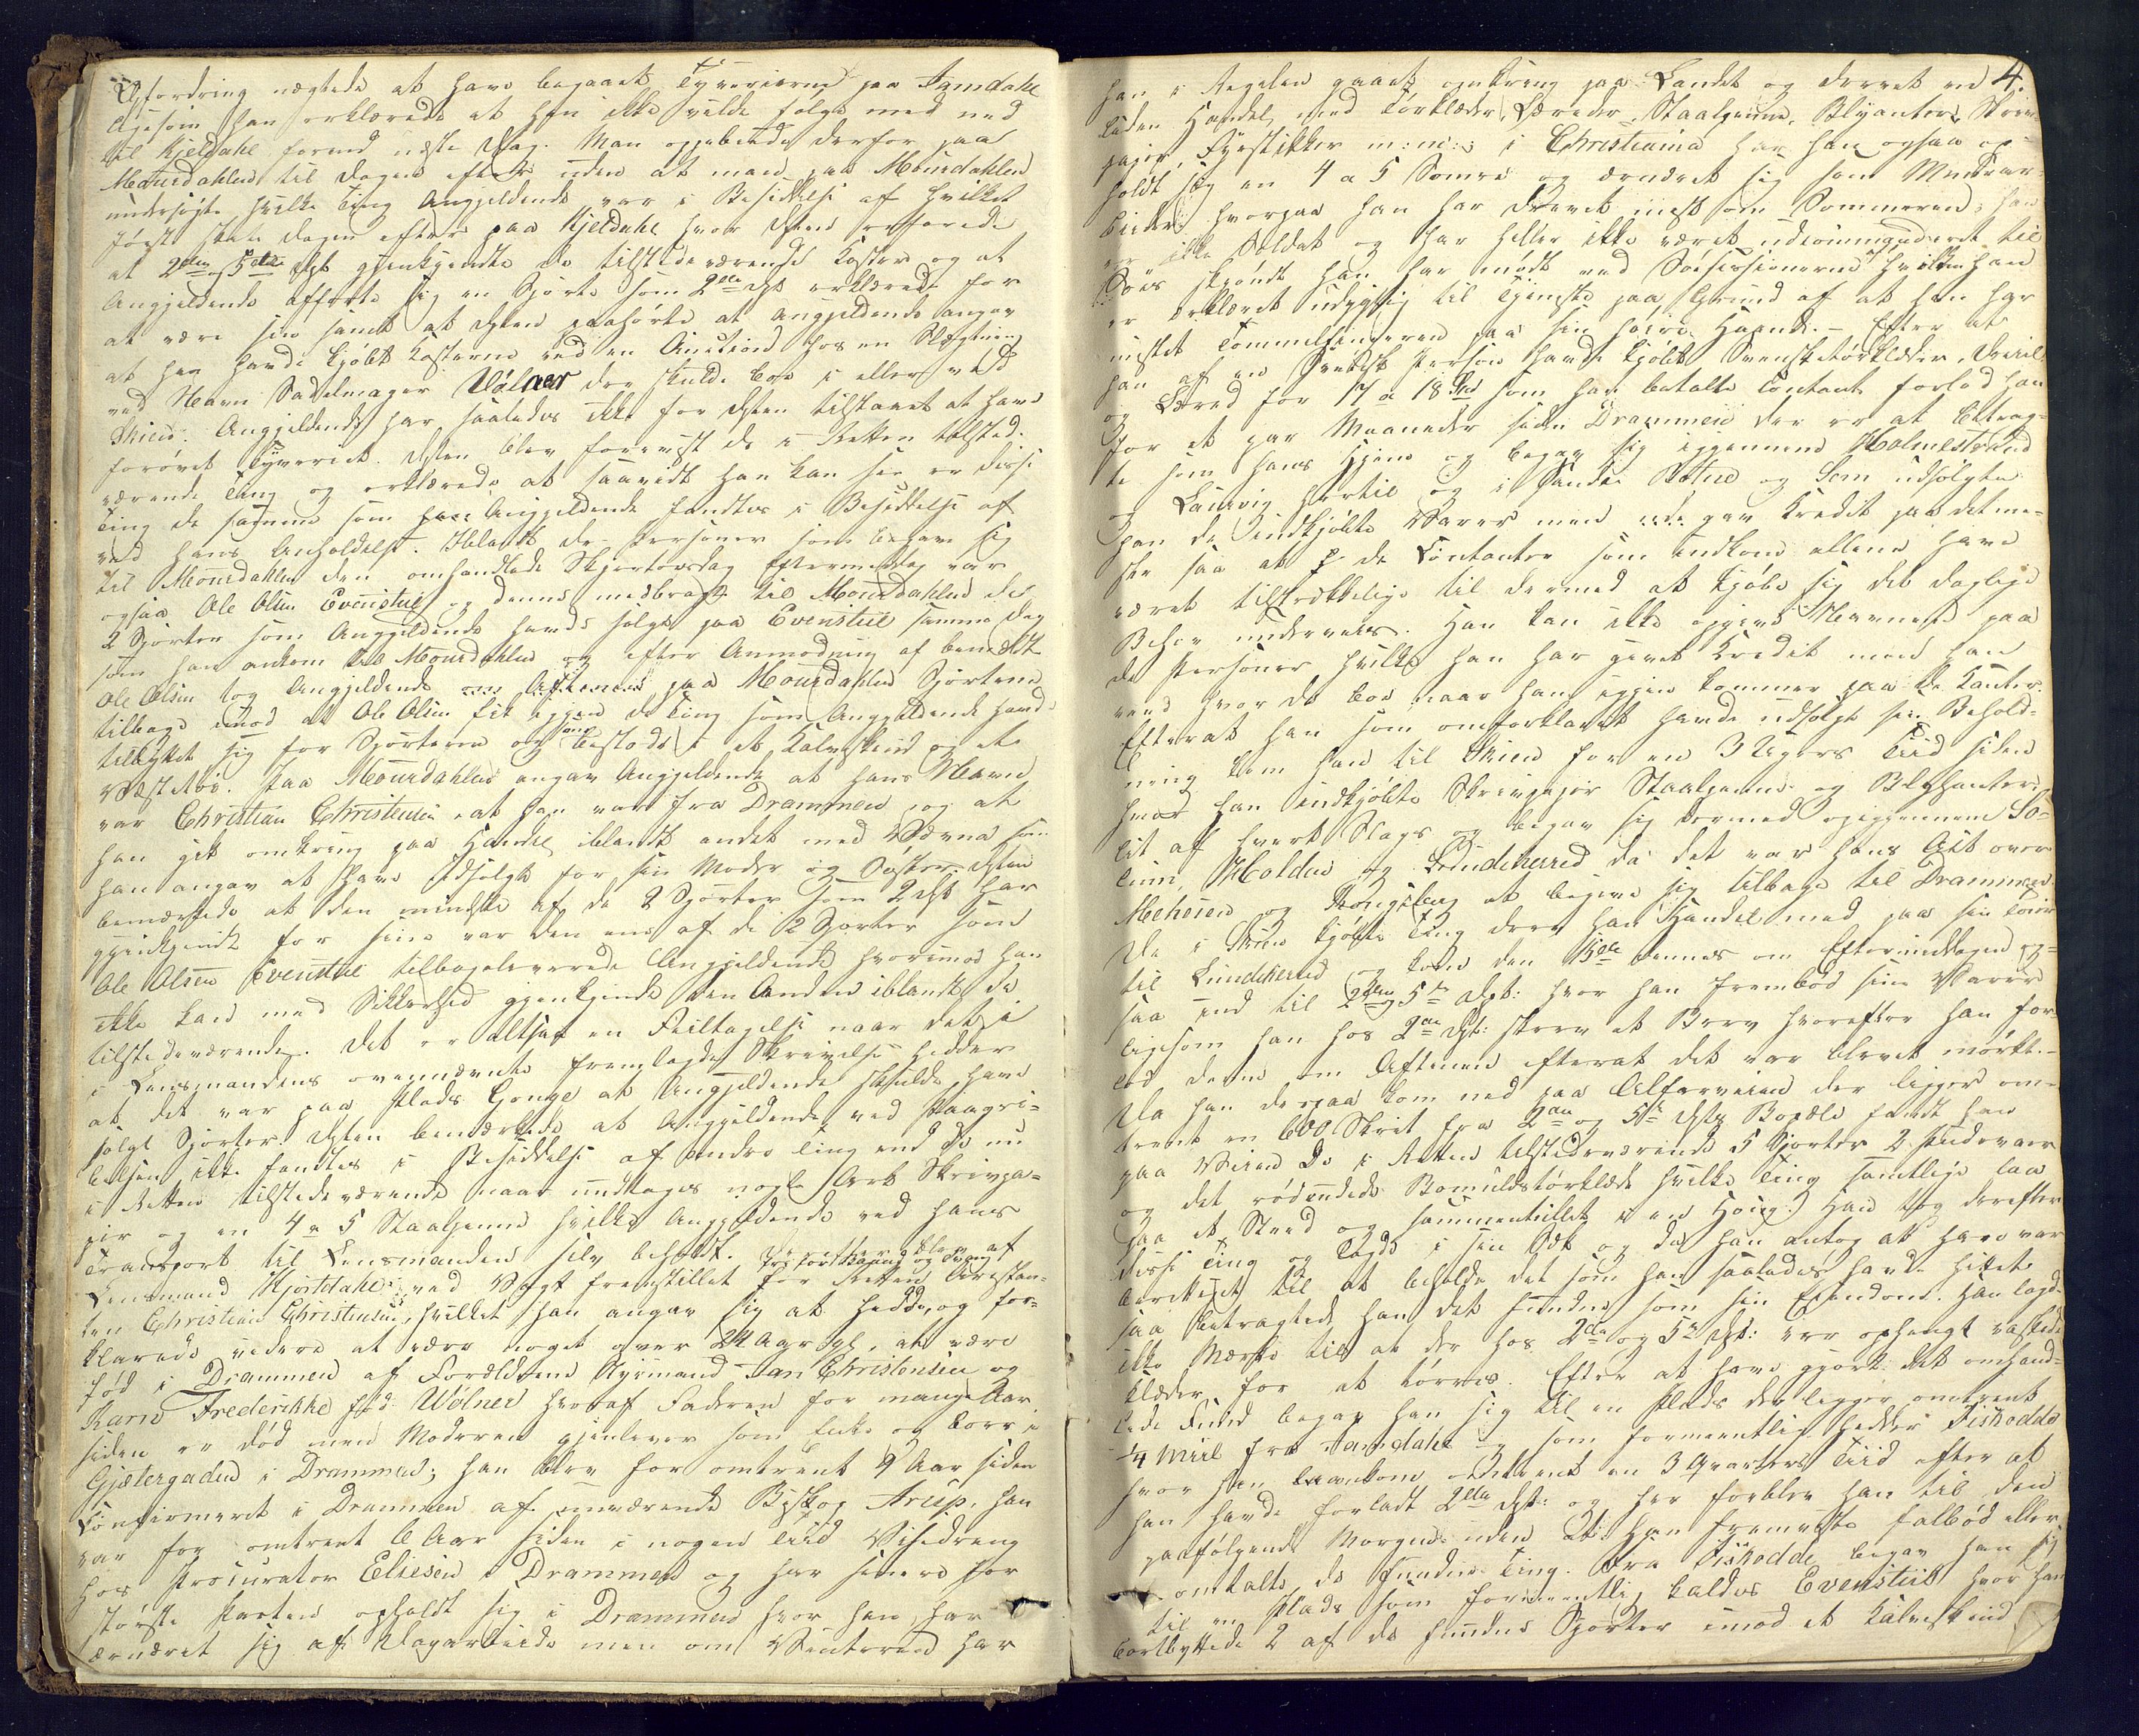 Opfordring nægtede at have begaaet Tyverierne paa Tamdahl
ligesom han erklærede at han ikke vilde følge med ned
til Kjeldahl forend næste Dag. Man oppebiede derfor paa
Mourdahlen til Dagen efter uden at man paa Mourdahlen
undersøgte hvilke Ting Angjeldende var i Besiddelse af hvilket
først skede Dagen efter paa Kjeldahl hvor Dpten erfarede
at 2den og 5te Dpt gjenkjendte de tilstedeværende Koster og at
Angjeldende afførte sig en Sjorte som 2den Dpt erklærede for
at være sin samt at Dpten paahørte at Angjeldende angav
at han havde kjøbt Kosterne ved en Auction hos en Slægtning
ved Navn Sadelmager Völner der skulde boe i eller ved
Skien. Angjeldende har saaledes ikke for Dpten tilstaaet at have
forøvet Tyveriet. Dpten blev forevist de i Retten tilstede-
værende Ting og erklærede at saavidt han kan see er disse
Ting de samme som Angjeldende fandtes i Besiddelse af
ved hans Anholdelse. Iblandt de Personer som begave sig
til Mourdahlen den omhandlede Skjærtorsdag Eftermiddag var
ogsaa Ole Olsen Evenstul og denne medbragte til Mourdahlen de
2 Sjorter som Angjeldende havde solgt paa Evenstul samme Dag
som han ankom til Mourdahlen og efter Anmodning af bemeldte
Ole Olsen tog Angjeldende om Aftenen paa Mourdahlen Sjorterne
tilbage imod at Ole Olsen fik igjen de Ting som Angjeldende havde
tilbyttet sig for Sjorterne og som bestode i et Kalveskind og et
Vestetøi. Paa Mourdahlen angav Angjeldende at hans Navn
var Christian Christensen, at han var fra Drammen og at
han gik omkring paa Handel iblandt andet med Vævna som
han angav at have udsolgt for sin Moder og Søster. Dpten
bemærkede at den mindste af de 2 Sjorter som 2 Dpt har
gjenkjendt for sine var den ene af de 2 Sjorter som
Ole Olsen Evenstul tilbageleverede Angjeldende hvorimod han
ikke kan med Sikkerhed gjenkjende den Anden iblandt de
tilstedeværende. Det er altsaa en Feiltagelse naar det i
i Lensmandens ovennævnte fremlagde Skrivelse hedder
at det var paa Plads Gonge at Angjeldende skulde have
solgt Sjorter. Dpten bemærkede at Angjeldende ved Paagri-
belsen ikke fandtes i Besiddelse af andre Ting end de nu
i Retten tilstedeværende naar undtages nogle Ark Skrivpa-
pir og en 4 a 5 Staalpenne hvilke Angjeldende ved hans
Transport til Lensmanden selv beholdt. Dpt fortsattes og blev af
Lensmand Hjortdahl ved Vagt fremstillet for Retten Arrestan-
ten Christian Christensen, hvilket han angav sig at hedde, og for-
klarede videre at være noget over 24 Aar gl. at være
fød i Drammen af Forældrene Styrmand Jan Christensen og
Karen Frederikke fød Wölner hvoraf Faderen for mange Aar
siden er død men Moderen gjenlever som Enke og boer i
Gjætergaden i Drammen; han blev for omtrent 9 Aar siden
confirmeret i Drammen af nuværende Biskop Arup, han
var for omtrent 6 Aar siden i nogen Tiid Visedreng
hos Procurator Eliesen i Drammen og har senere for
største Parten opholdt sig i Drammen hvor han har
ernæret sig af Dagarbeide men om Vinteren har
4.
han i Regelen gaaet omkring paa Landet og drevet en
liden Handel med Tørklæder, Lærreder, Staalpenne, Blyanter, Skriv-
papir, Fyrstikker m: m: ; i Christiania har han ogsaa op-
holdt sig en 4 a 5 Somre og ernæret sig som Murar-
beider hvorpaa han har drevet mest om Sommeren; han
er ikke Soldat og har heller ikke været udcommanderet til
Søes skjøndt han har mødt ved Søesessionerne hvilken han
er erklæret udygtig til Tjeneste paa Grund af at han har
mistet Tommelfingeren paa sin høire Haand. – Efter at
han af en Svensk Person havde kjøbt Svensketørklæder, Dreiel
og Lærred for 17 a 18 Spd som han betalte Contant forlod han
for et par Maaneder siden Drammen der er at betrag-
te som hans Hjem og begav sig igjennem Holmestrand
og Laurvig hertil og i Sande Botne og Sem udsolgte
han de indkjøbte Varer men gav Kredit paa det me-
ste saa at de Contanter som indkom allene have
været tilstrækkelige til dermed at kjøbe sig det daglige
Behov underveis. Han kan ikke opgive Navnene paa
de Personer hvilke han har givet Kredit men han
veed hvor de boe naar han igjen kommer paa de Kanter.
Efterat han som omforklaret havde udsolgt sin Behold-
ning kom han til Skien for en 3 Ugers Tiid siden
hvor han indkjøbte Skrivpapir Staalpenne og Blyhanter
lit af hvert Slags og begav sig dermed opigjennem So-
lum, Holden og Lundeherred da det var hans Agt over
Meheien og Kongsberg at begive sig tilbage til Drammen
De i Skien kjøbte Ting drev han Handel med paa sin Tour
til Lundeherred og kom den 13de dennes om Eftermiddagen og-
saa ind til 2den og 5te Dpt: hvor han frembød sine Varer
ligesom han hos 2den Dpt: skrev et Brev hvorefter han for-
lod denne om Aftenen efterat det var blevet mørkt. –
Da han derpaa kom ned paa Alfarveien der ligger om-
trent en 600 Skrit fra 2den og 5te Dpts Bopæle fandt han
paa Veien de i Retten tilstedeværende 5 Sjorter 2 Pudevaar
og det rødrudede Bomuldstørklæde hvilke Ting samtlige laae
paa et Sted og sammentullet i en Houg. Han tog derefter
disse Ting og lagde i sin Sæk og da han antog at have vær
berettiget til at beholde det som han saaledes havde hittet
saa betragtede han det fundne som sin Eiendom. Han lagde
ikke Mærke til at der hos 2den og 5te Dpt: var ophengt vaskede
Klæder for at tørres. Efter at have gjort det omhand-
lede Fund begav han sig til en Plads der ligger omtrent
1/4 Miil fra Tamdahl og som formeentlig hedder Fiskodde
hvor han ankom omtrent en 3 Qvarters Tiid efter at
han havde forladt 2den Dpt: og her forblev han til den
paafølgende Morgen uden at han fremviste falbød eller
omtalte de fundne Ting. Fra Fiskodde begav han sig
til en Plads som formeentlig kaldes Evenstul hvor han
bortbyttede 2 af de fundne Sjorter imod et Kalveskind